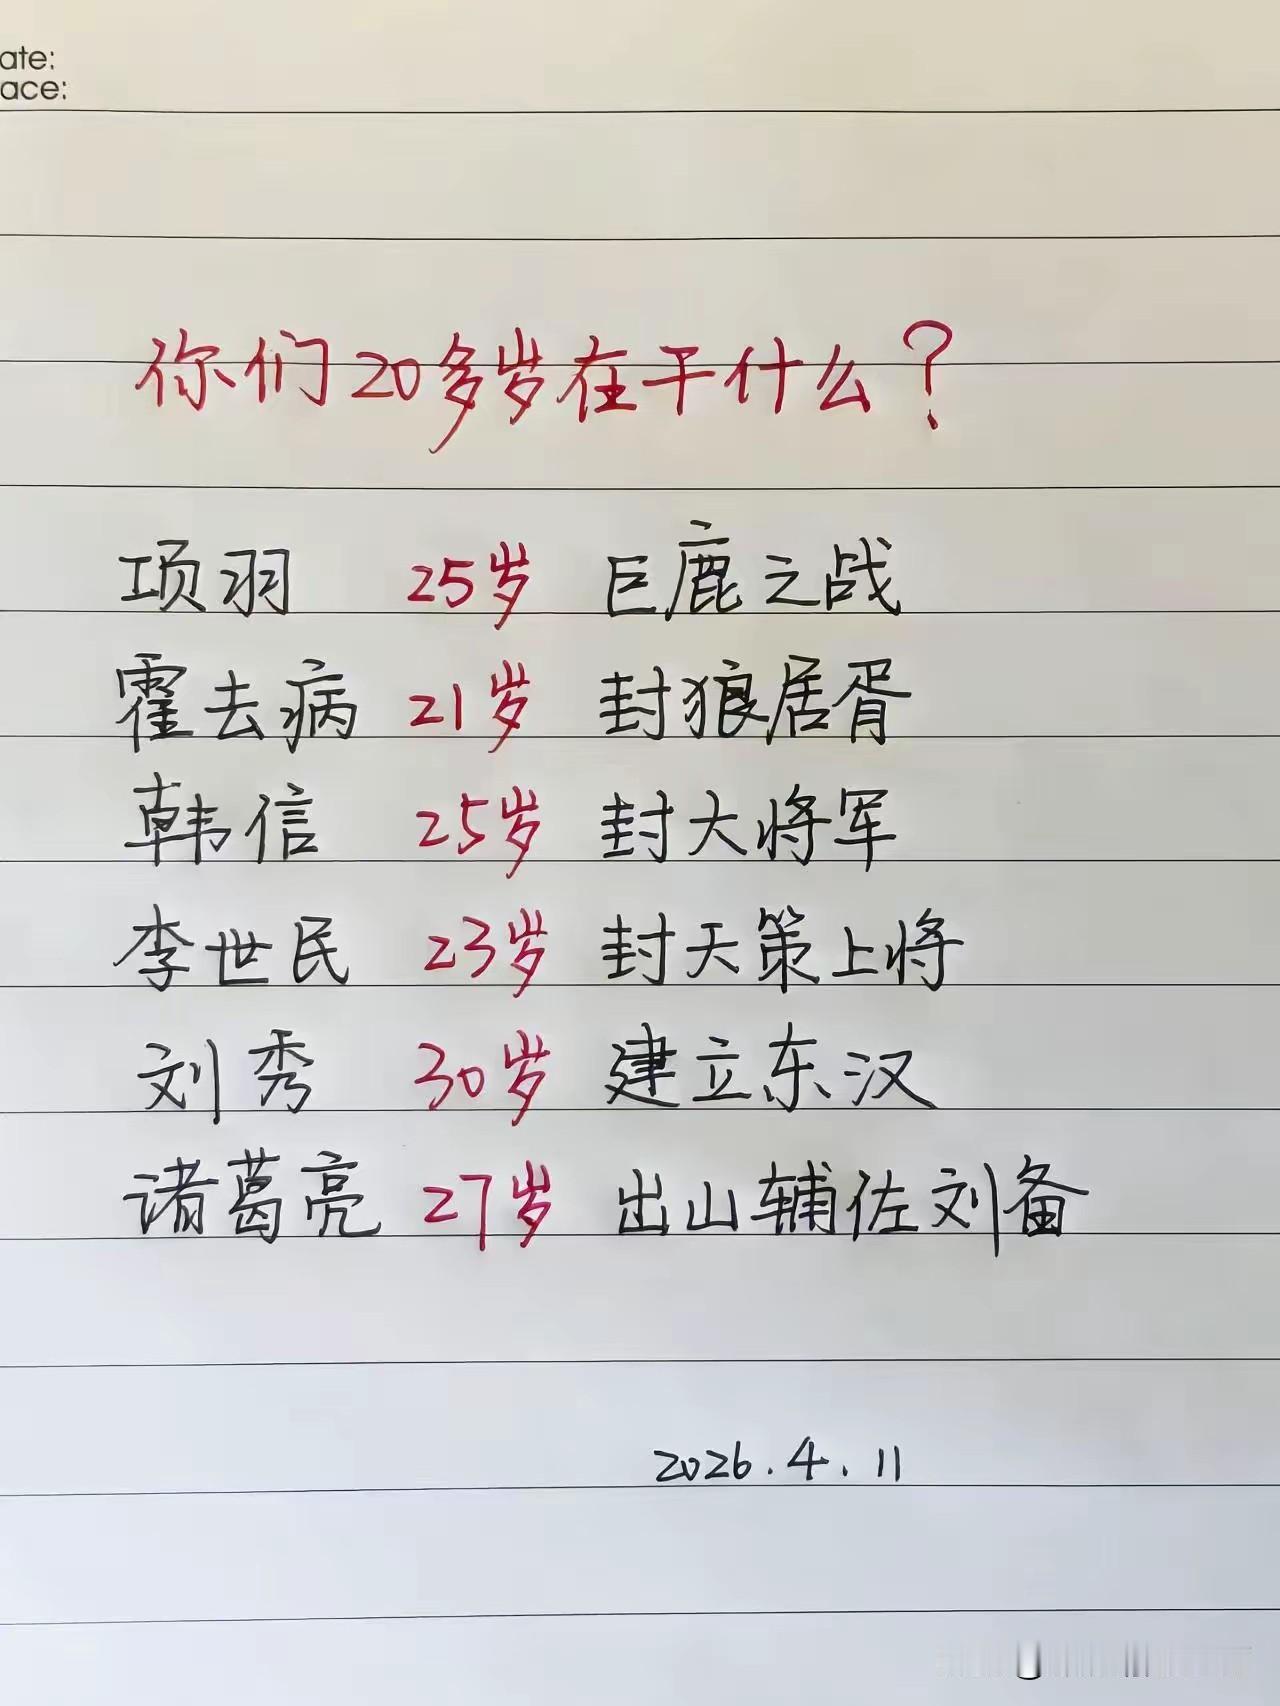 ate:
ace:
你们20多岁在干什么?
项羽 25岁 巨鹿之战
霍去病 21岁 封狼居胥
韩信 25岁 封大将军
李世民 23岁 封天策上将
刘秀 30岁 建立东汉
诸葛亮 27岁 出山辅佐刘备
2026.4.11